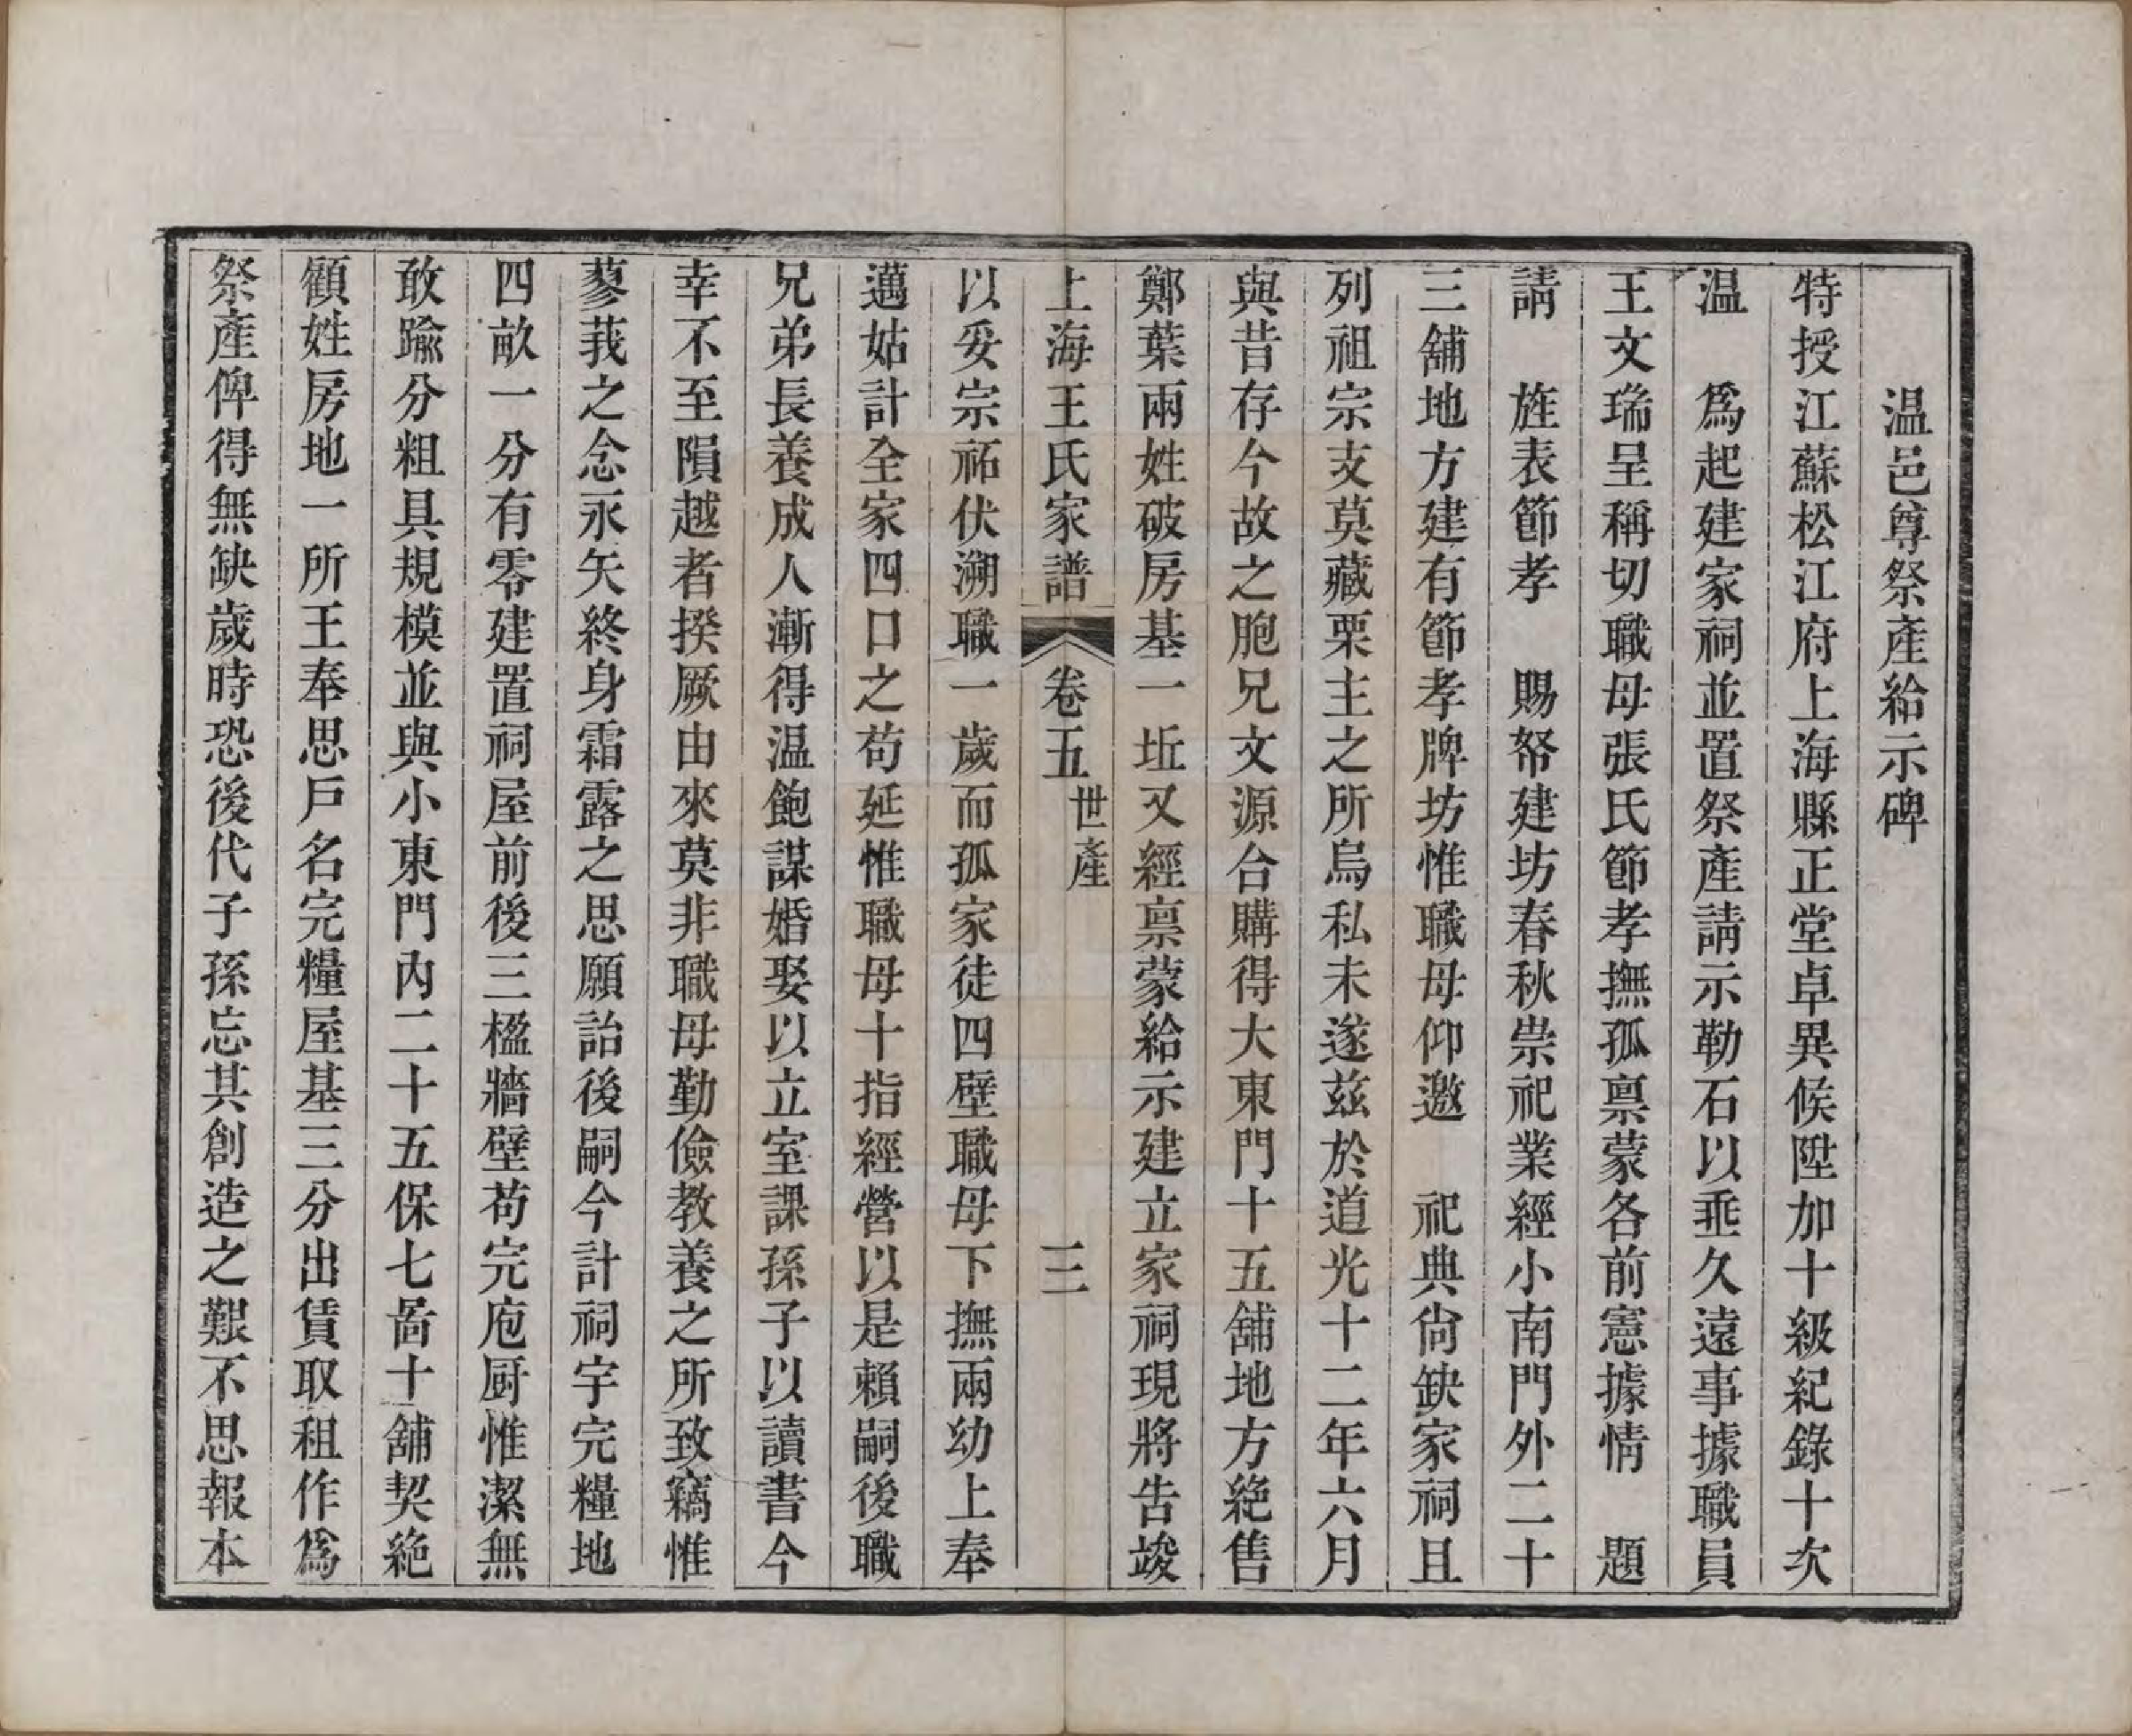 温邑尊祭產給示碑
特授江蘇松江府上海縣正堂卓異候陞加十級紀錄十次
温　爲起建家祠並置祭產請示勒石以垂久遠事據職員
王文瑞呈稱切職母張氏節孝撫孤禀蒙各前憲據情　題
請　旌表節孝　賜帑建坊春秋祟祀業經小南門外二十
三舖地方建有節孝牌坊惟職母仰邀　祀典尙缺家祠且
列祖宗支莫藏栗主之所烏私未遂茲於道光十二年六月
與昔存今故之胞兄文源合購得大東門十五舖地方絶售
鄭葉兩姓破房基一坵又經禀蒙給示建立家祠現將告竣
上海王氏家譜　卷五　世產　三
以妥宗祏伏溯職一歲而孤家徒四壁職母下撫兩幼上奉
邁姑計全家四口之苟延惟職母十指經營以是賴嗣後職
兄弟長養成人漸得温飽謀婚娶以立室課孫子以讀書今
幸不至隕越者揆厥由來莫非職母勤儉教養之所致竊惟
蓼莪之念永矢終身霜露之思願詒後嗣今計祠宇完糧地
四畝一分有零建置祠屋前後三楹牆壁苟完庖厨惟潔無
敢踰分粗具規模並與小東門內二十五保七啚十舖契絶
顧姓房地一所王奉思戶名完糧屋基三分出賃取租作爲
祭產俾得無缺歲時恐後代子孫忘其創造之艱不思報本